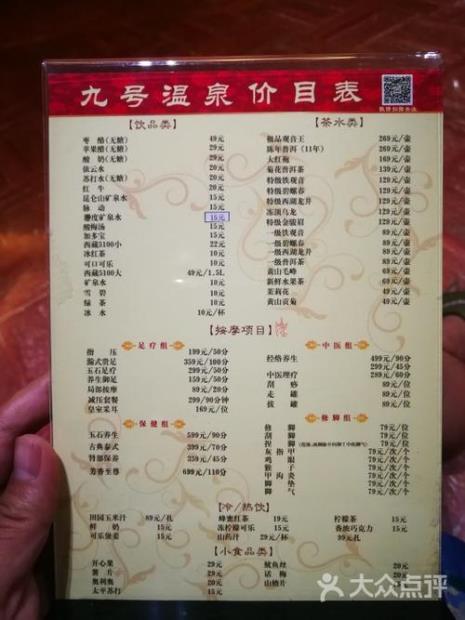 九号温泉价目表
【饮品类】
枣醋(无糖) 49元
苹果醋(无糖) 29元
酸奶(无糖) 29元
依云水 20元
苏打水(无糖) 20元
红牛 20元
昆仑山矿泉水 15元
脉动 15元
15元
酸梅汤 15元
加多宝 15元
西藏5100小 22元
冰红茶 10元
可口可乐 10元
西藏5100大 49元/1.5L
矿泉水 10元
雪碧 10元
绿茶 10元
冰水 10元/杯
【茶水类】
极品观音王 269元/壶
陈年普洱(11年) 269元/壶
大红袍 169元/壶
菊花普洱茶 139元/壶
特级铁观音 129元/壶
特级碧螺春 129元/壶
特级西湖龙井 129元/壶
冻顶乌龙 129元/壶
特级金骏眉 129元/壶
一级铁观音 89元/壶
一级碧螺春 89元/壶
一级西湖龙井 89元/壶
一级普洱茶 89元/壶
黄山毛峰 89元/壶
新鲜水果茶 89元/壶
茉莉花 49元/壶
黄山贡菊 49元/壶
【按摩项目】
足疗组
指压 199元/50分
瀚式贵足 359元/100分
玉石足疗 299元/50分
养生御足 159元/50分
局部按摩 89元/20分
减压套餐 299/90分钟
皇室采耳 169元/位
中医组
经络养生 499元/90分
299元/45分
中医理疗 289元/60分
刮痧 89元/位
走罐 89元/位
拔罐 89元/位
保健组
玉石养生 599元/90分
古典泰式 399元/70分
特部保养 359元/45分
芳香至尊 699元/110分
修脚组
修脚 79元/位
刮脚 79元/位
捏脚 79元/位
灰指甲 79元/次/个
鸡眼 79元/次/个
猴子 79元/次/个
甲沟炎 79元/次/个
脚垫 79元/次/个
脚气 79元/次/个
【冷/热饮】
田园玉米汁 89元/扎
蜂蜜红茶 19元
柠檬茶 15元
鲜奶 15元
冻柠檬可乐 15元
香浓巧克力 15元
可乐煲姜 15元
山药汁 29元/杯
99元扎
【小食品类】
开心果 29元
鱿鱼丝 20元
薯片 20元
话梅 20元
奥利奥 15元
山楂片 20元
太平苏打 15元
大众点评